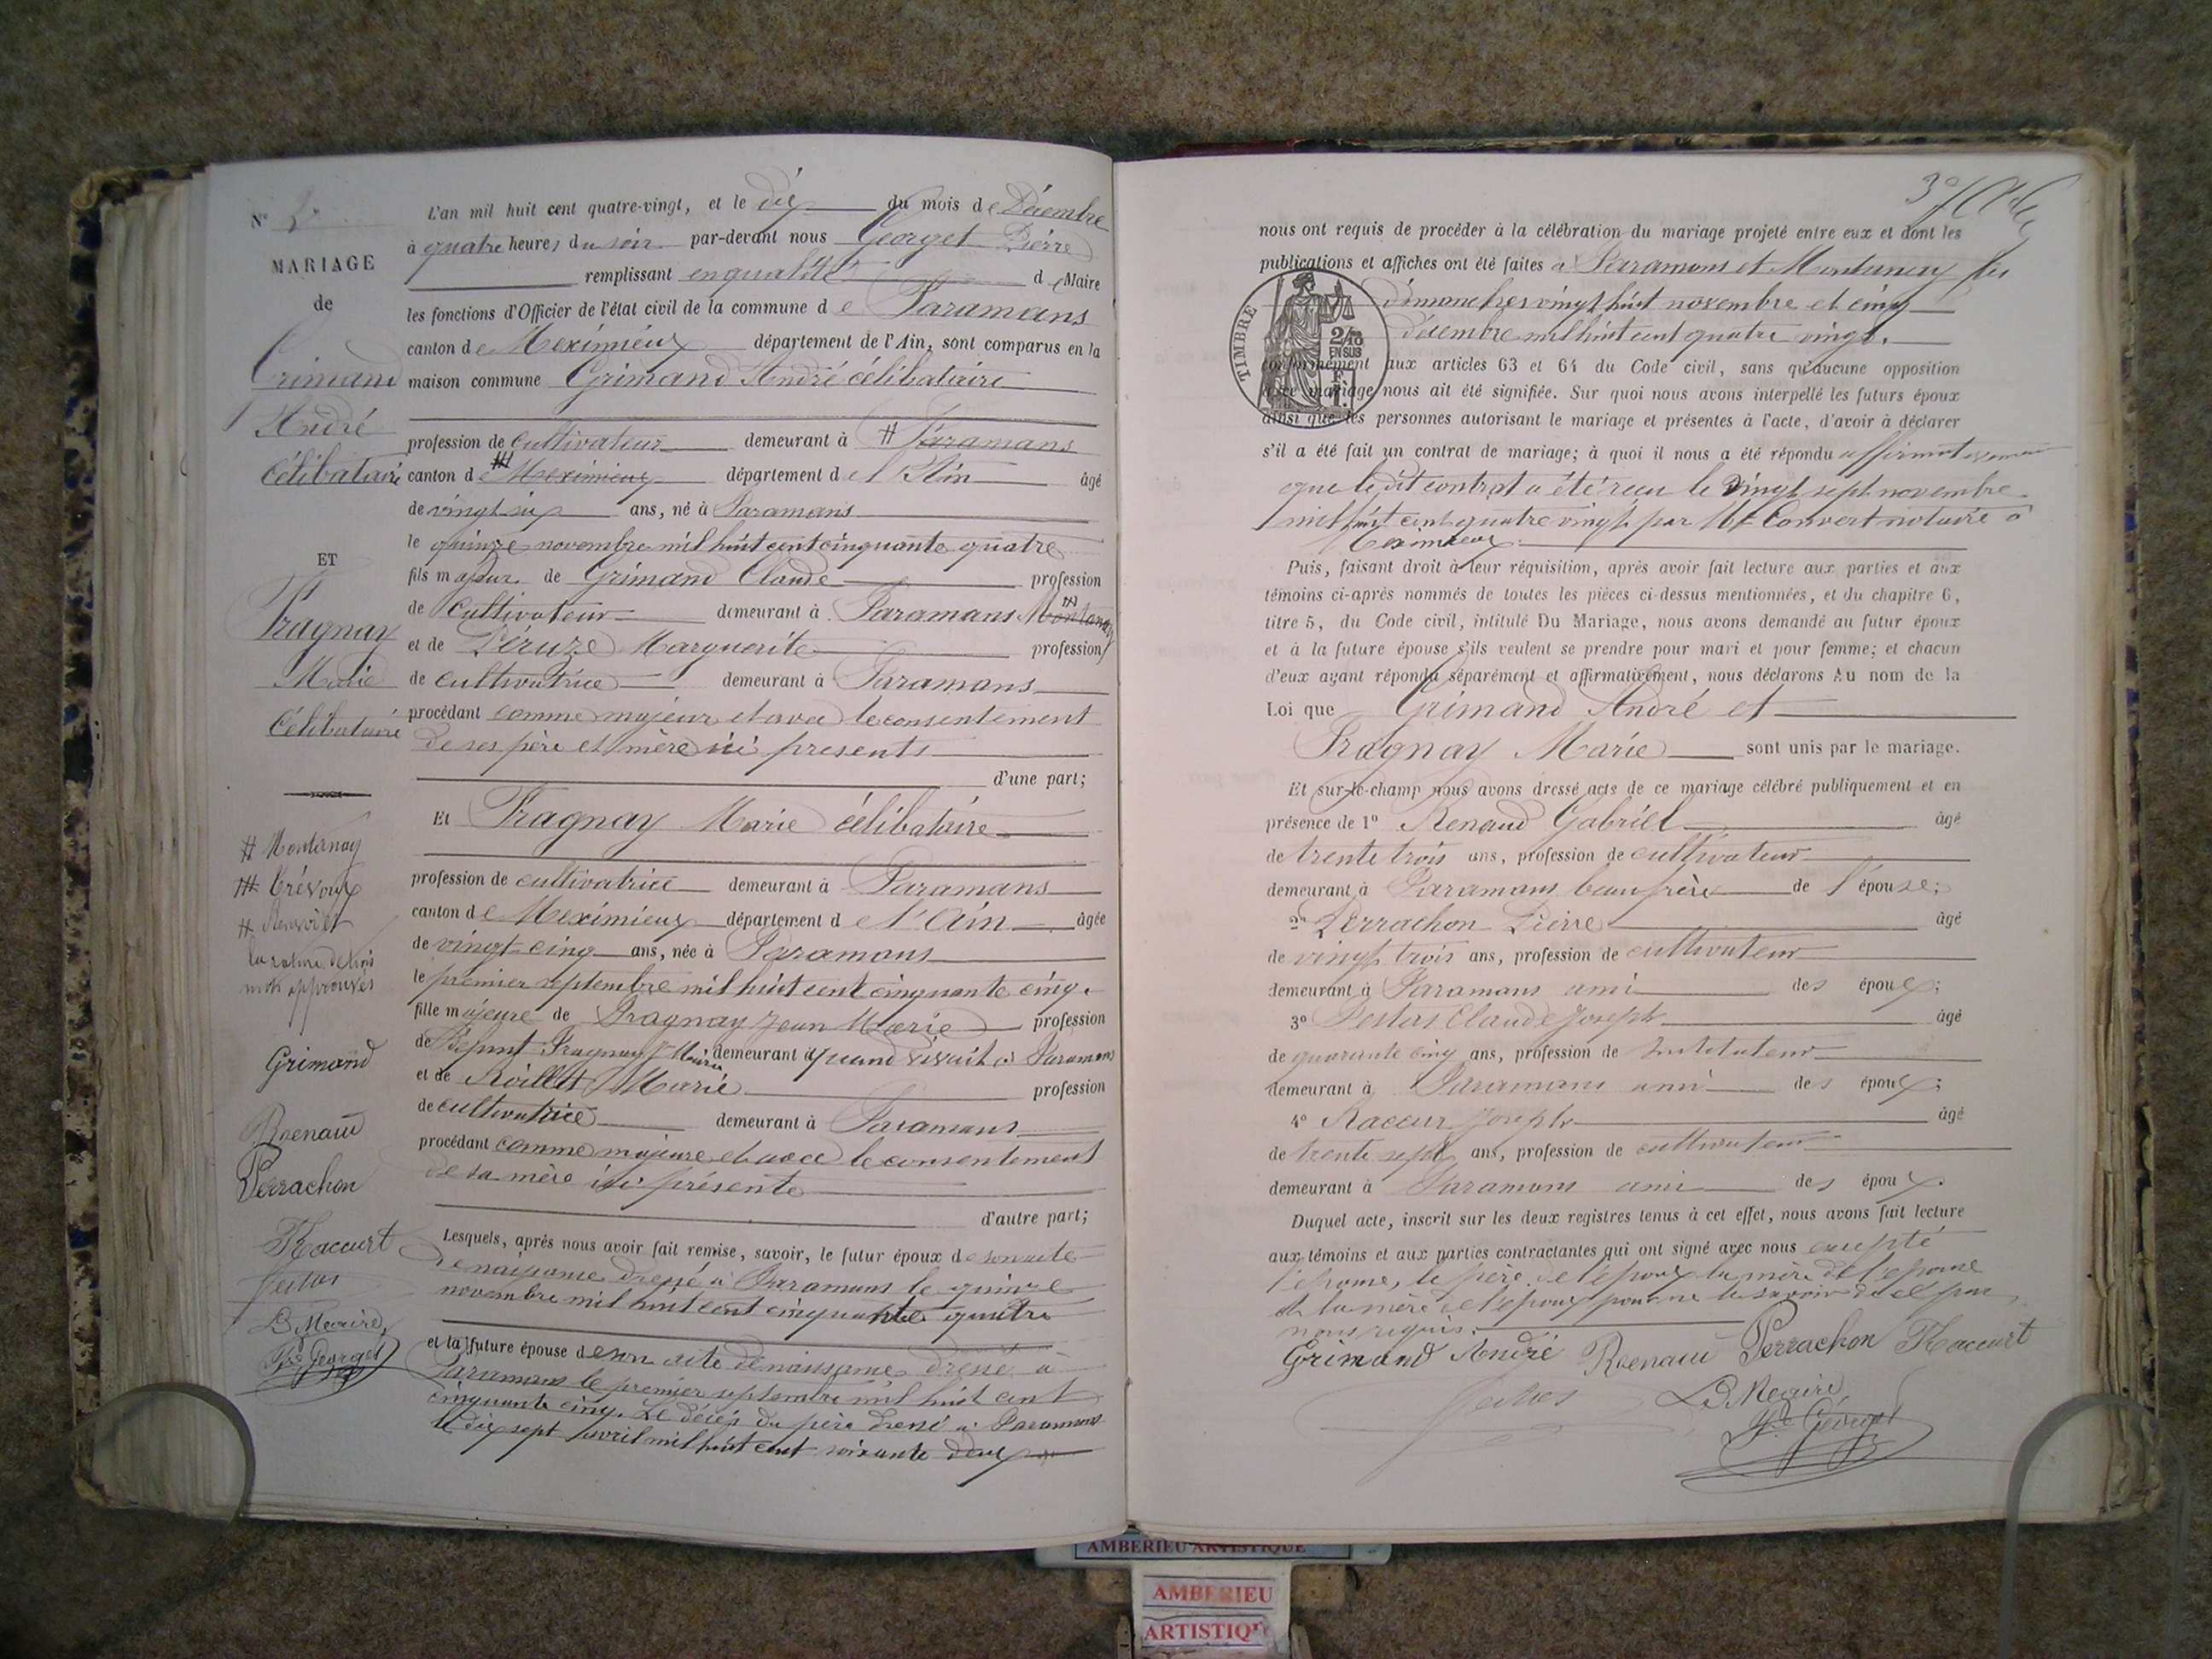 N°
MARIAGE
de
Grimand
André
Célibataire
ET
Fragnay
Marie
Célibataire
# Montanay
## Trévoux
la rature de trois
mots approuvés
Grimand
Renaud
Perrachon
Raccurt
Le Maire,
Georget
L'an mil huit cent quatre-vingt, et le dix du mois de Décembre
à quatre heures du soir par-devant nous Georget Pierre
remplissant en qualité de Maire
les fonctions d'Officier de l'état civil de la commune de Faramans
canton de Meximieux département de l'Ain, sont comparus en la
maison commune Grimand André célibataire
profession de cultivateur demeurant à # Faramans
canton de ## Meximieux département de l'Ain âgé
de vingt six ans, né à Faramans
le quinze novembre mil huit cent cinquante quatre
fils majeur de Grimand Claude profession
de cultivateur demeurant à Faramans Montanay
et de Péruze Marguerite profession
de cultivatrice demeurant à Faramans
procédant comme majeur et avec le consentement
de ses père et mère ici présents
d'une part;
Et Fragnay Marie célibataire
profession de cultivatrice demeurant à Faramans
canton de Meximieux département de l'Ain âgée
de vingt cinq ans, née à Faramans
le premier septembre mil huit cent cinquante cinq.
fille majeure de Fragnay Jean Marie profession
de Défunt Fragnay J. Marie demeurant quand vivait à Faramans
et de Roillet Marie profession
de cultivatrice demeurant à Faramans
procédant comme majeure et avec le consentement
de sa mère ici présente
d'autre part;
Lesquels, après nous avoir fait remise, savoir, le futur époux de son acte
de naissance dressé à Faramans le quinze
novembre mil huit cent cinquante quatre
et la future épouse de son acte de naissance dressé à
Faramans le premier septembre mil huit cent
cinquante cinq. Le décès du père dressé à Faramans
le dix sept avril mil huit cent soixante deux
nous ont requis de procéder à la célébration du mariage projeté entre eux et dont les
publications et affiches ont été faites à Faramans et Montanay les
dimanches vingt huit novembre et cinq
décembre mil huit cent quatre vingt.
TIMBRE
2/10
EN SUS
conformément aux articles 63 et 64 du Code civil, sans qu'aucune opposition
à ce mariage nous ait été signifiée. Sur quoi nous avons interpellé les futurs époux
ainsi que les personnes autorisant le mariage et présentes à l'acte, d'avoir à déclarer
s'il a été fait un contrat de mariage; à quoi il nous a été répondu affirmativement
que le dit contrat a été reçu le vingt sept novembre
mil huit cent quatre vingt par Me Convert notaire à
Meximieux.
Puis, faisant droit à leur réquisition, après avoir fait lecture aux parties et aux
témoins ci-après nommés de toutes les pièces ci-dessus mentionnées, et du chapitre 6,
titre 5, du Code civil, intitulé Du Mariage, nous avons demandé au futur époux
et à la future épouse s'ils veulent se prendre pour mari et pour femme; et chacun
d'eux ayant répondu séparément et affirmativement, nous déclarons Au nom de la
Loi que Grimand André et
Fragnay Marie sont unis par le mariage.
Et sur-le-champ nous avons dressé acte de ce mariage célébré publiquement et en
présence de 1° Renaud Gabriel âgé
de trente trois ans, profession de cultivateur
demeurant à Faramans beau frère de l'épouse;
2° Perrachon Pierre âgé
de vingt trois ans, profession de cultivateur
demeurant à Faramans ami des époux;
3° Claude Joseph âgé
de quarante cinq ans, profession de Instituteur
demeurant à Faramans ami des époux;
4° Raccur Joseph âgé
de trente sept ans, profession de cultivateur
demeurant à Faramans ami des époux.
Duquel acte, inscrit sur les deux registres tenus à cet effet, nous avons fait lecture
aux témoins et aux parties contractantes qui ont signé avec nous excepté
l'épouse, le père de l'époux la mère de l'épouse
et la mère de l'époux pour ne le savoir de ce par
nous requis.
Grimand André Renaud Perrachon Raccurt
Le Maire,
Georget
AMBERIEU ARTISTIQUE
AMBERIEU
ARTISTIQUE